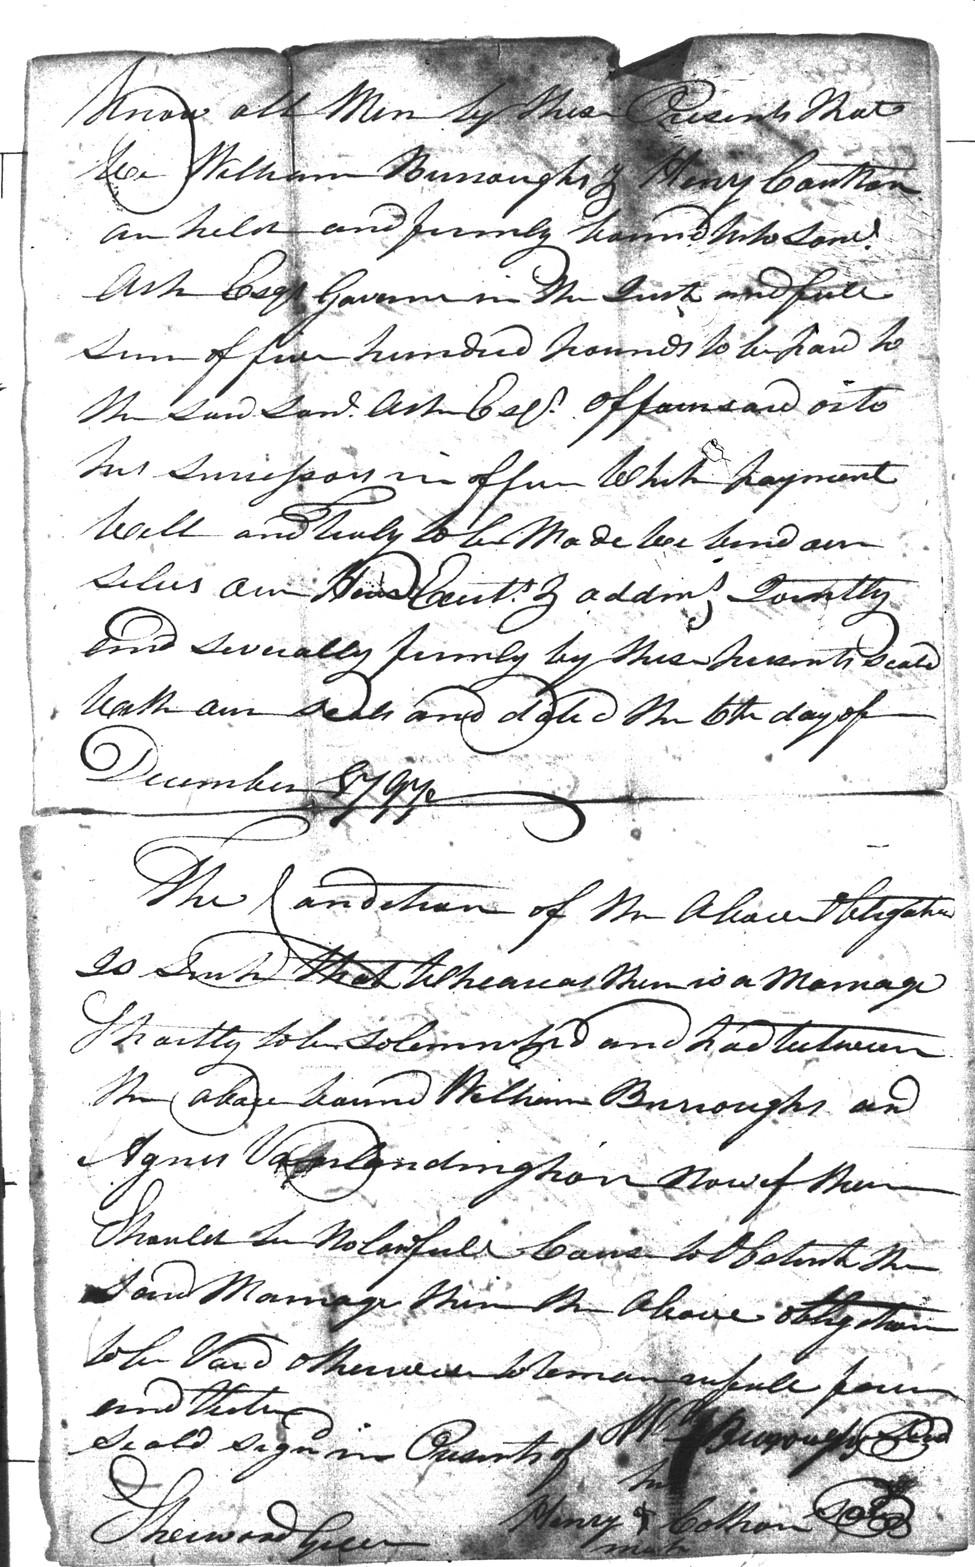 Know all Men by these Presents that
We William Burroughs & Henry Cotton
are held and firmly bound unto Saml.
Ash Esqr Governer in the Just and full
sum of five hundred pounds to be paid to
the said Saml. Ash Esqr. Officer said or to
his successors in office Which payment
Well and truly to be Made we bind our
selves our Heirs Exect.s & addm.s Jointly
and severally firmly by these presents seald
With our seals and dated the 6th day of
December 1797
The Condition of the Above Obligation
Is Such that Whereas there is a Marriage
Shortly to be solemnized and had between
the above bound William Burroughs and
Agnes Vanlandingham Now if there
Should be No lawfull Cause to Obstruct the
said Marriage then the Above obligation
to be Void otherwise to remain in full force
and Vertue
Seald Signd in Presents of Wm Burroughs Seal
his
Sherwood Green Henry Cotton Seal
mark